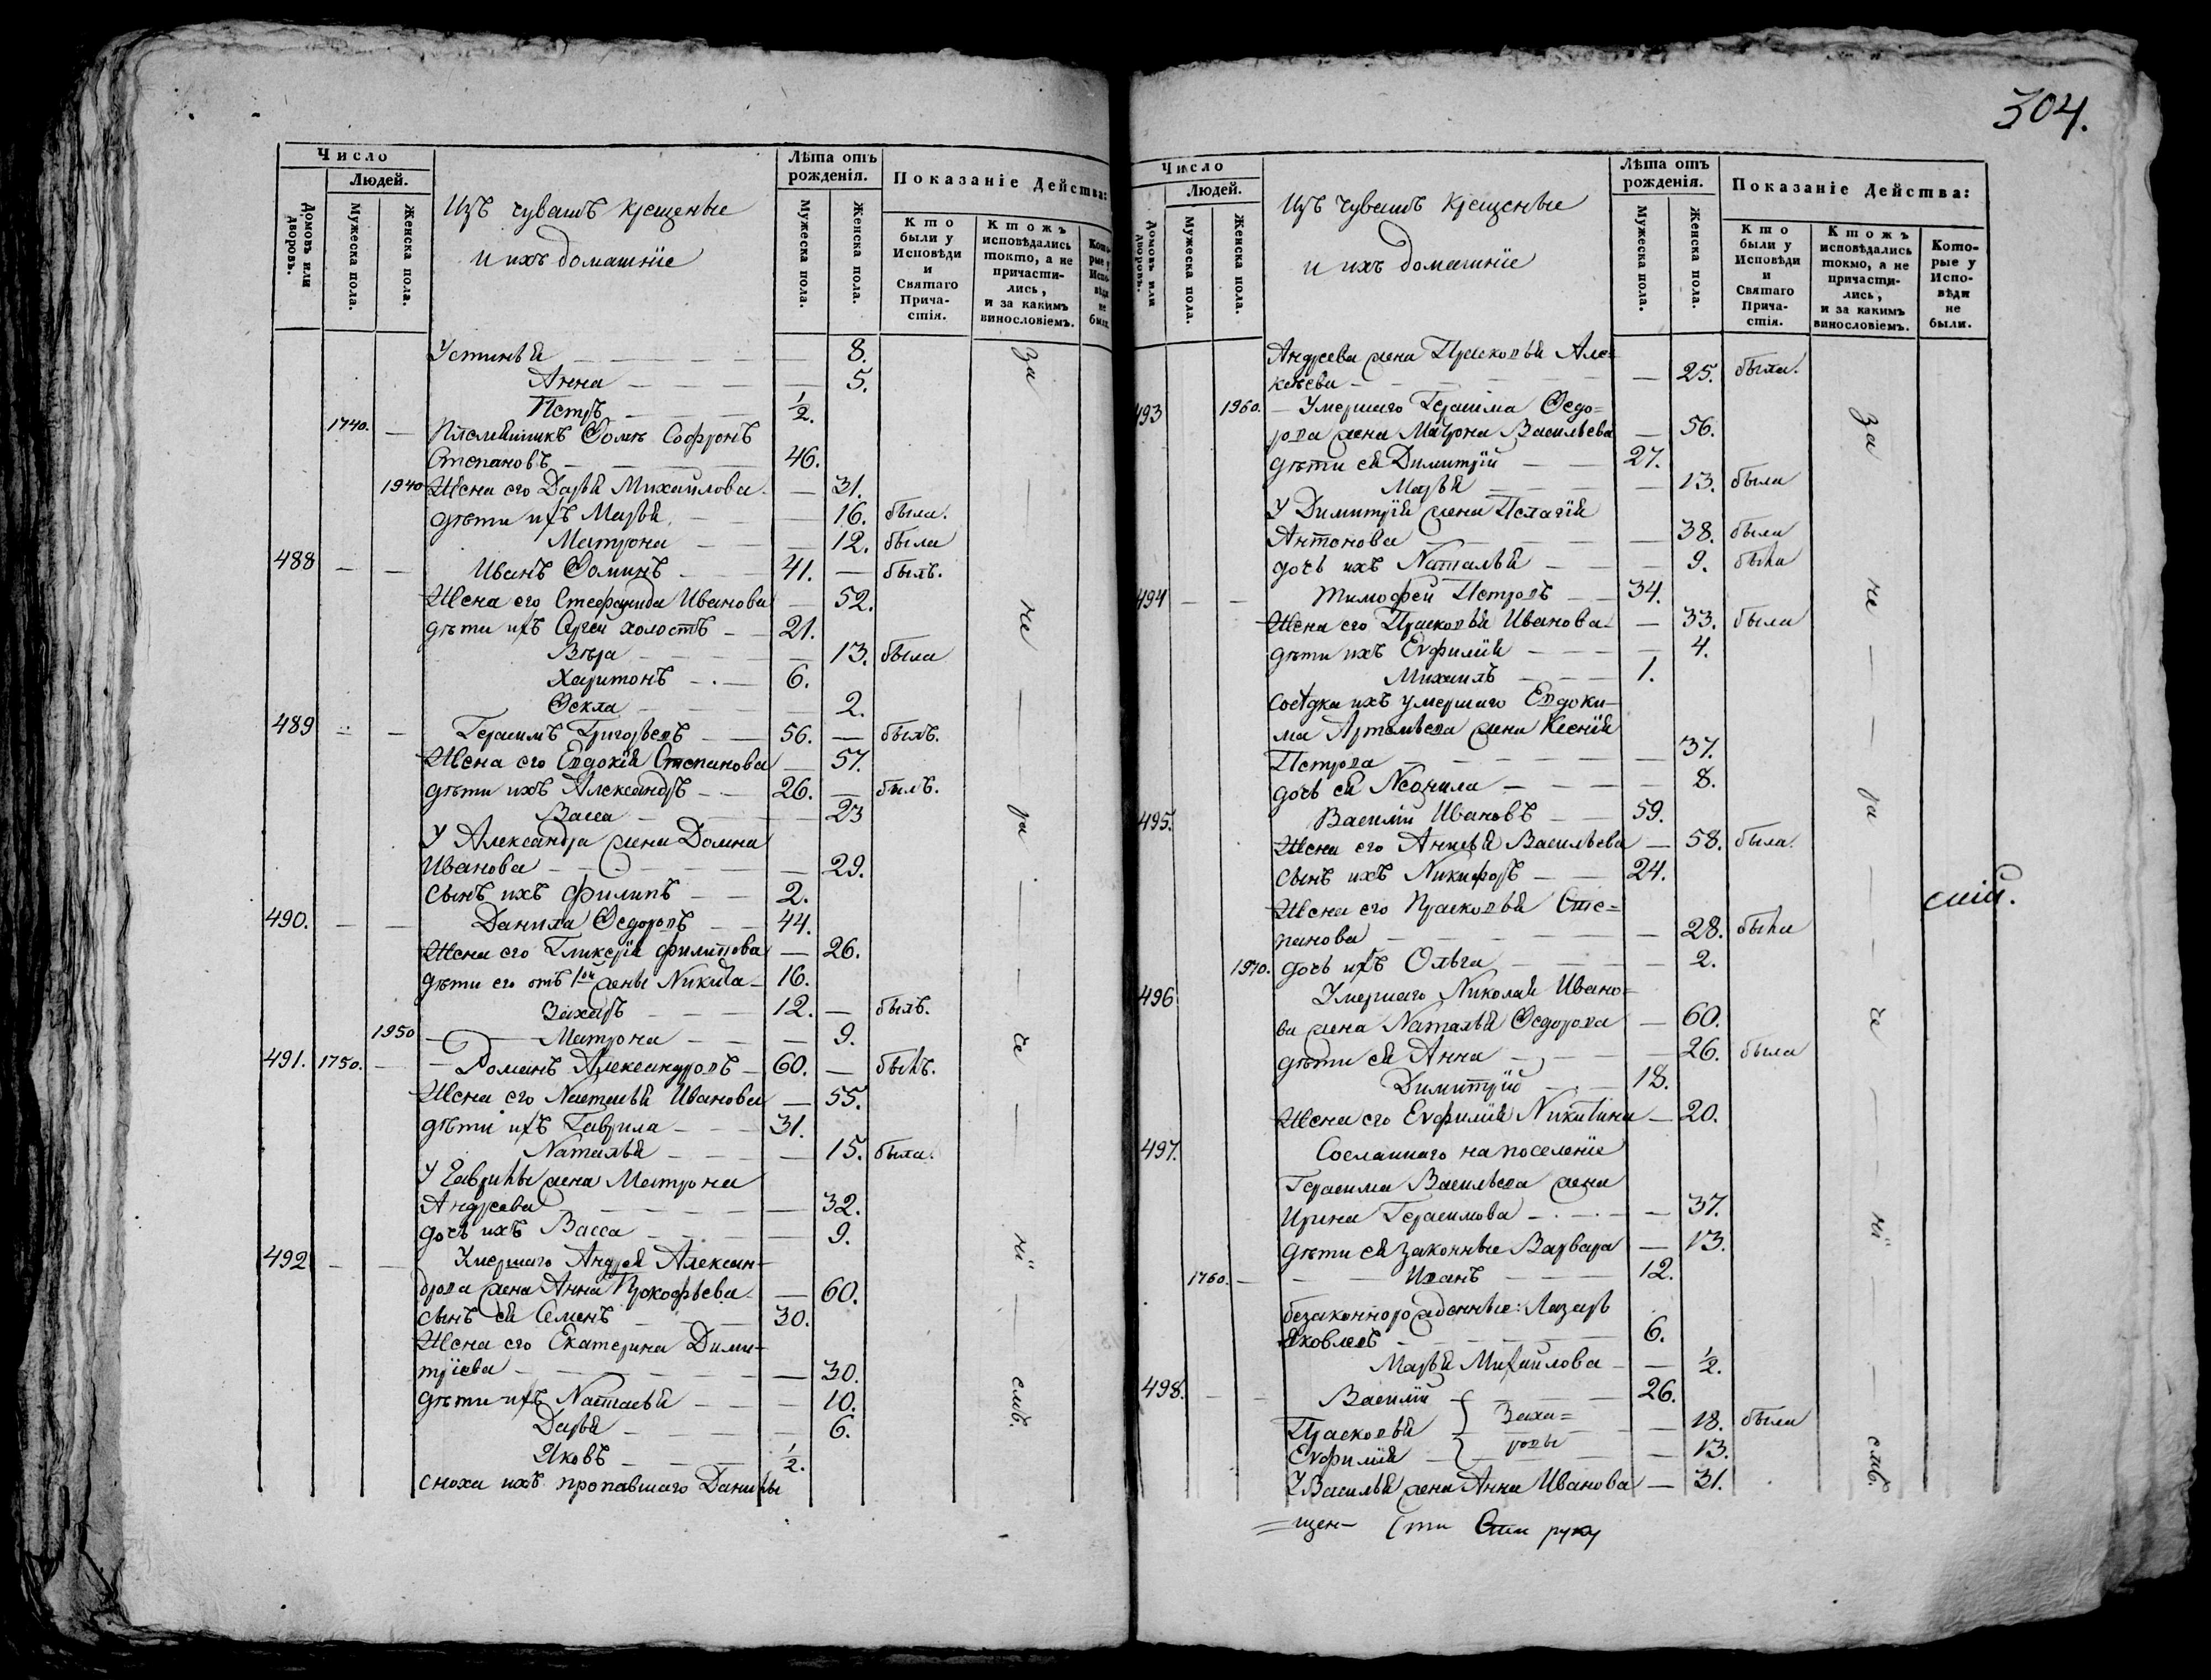 304.
Число
Людей.
Домовъ или дворовъ.
Мужеска пола.
Женска пола.
Изъ чувашъ крещеные
и ихъ домашніе
Лѣта отъ рожденія.
Мужеска пола.
Женска пола.
Показаніе Действа:
Кто были у Исповѣди и Святаго Причастія.
Ктожъ исповѣдались токмо, а не причастились, и за какимъ винословіемъ.
Которые у Исповѣди не были.
Устинья — 8.
Анна — 5.
Петръ 1/2.
1740. — Племянникъ Ѳомы Софронъ
Степановъ 46.
1940 Жена его Дарья Михайлова — 31.
дѣти ихъ Марья — 16. была.
Матрона — 12. была
488 — — Иванъ Ѳоминъ 41. — былъ.
Жена его Стефанида Иванова — 52.
дѣти ихъ Сергѣй холостъ 21.
Вѣра — 13. была
Харитонъ 6.
Ѳекла — 2.
489 — — Герасимъ Григорьевъ 56. — былъ.
Жена его Евдокія Степанова — 57.
дѣти ихъ Александръ 26. — былъ.
Васса — 23
У Александра жена Домна
Иванова — 29.
сынъ ихъ Филипъ 2.
490. — — Данила Ѳедоровъ 44.
Жена его Гликерія Филипова — 26.
дѣти его отъ 1ой жены Никита 16.
Захаръ 12. — былъ.
1950 — Матрона — 9.
491. 1750. — Романъ Александровъ 60. — былъ.
Жена его Наталья Иванова — 55.
дѣти ихъ Гаврила 31.
Наталья — 15. была.
У Гаврилы жена Матрона
Андреева — 32.
дочь ихъ Васса — 9.
492 — — Умершаго Андрея Алексан-
дрова жена Анна Прокофьева — 60.
сынъ ея Семенъ 30.
Жена его Екатерина Дими-
тріева — 30.
дѣти ихъ Наталья — 10.
Дарья — 6.
Яковъ 1/2.
сноха ихъ пропавшаго Данилы
за — не — ра — че — ні — емъ.
Число
Людей.
Домовъ или дворовъ.
Мужеска пола.
Женска пола.
Изъ чувашъ крещеные
и ихъ домашніе
Лѣта отъ рожденія.
Мужеска пола.
Женска пола.
Показаніе Действа:
Кто были у Исповѣди и Святаго Причастія.
Ктожъ исповѣдались токмо, а не причастились, и за какимъ винословіемъ.
Которые у Исповѣди не были.
Андреева жена Прасковья Але-
ксѣева — 25. была.
493 1960. — Умершаго Герасима Ѳедо=
рова жена Матрона Васильева — 56.
дѣти ея Димитрій 27.
Марья — 13. была
У Димитрія жена Пелагія
Антонова — 38. была
дочь ихъ Наталья — 9. была
494 — — Тимофей Петровъ 34.
Жена его Прасковья Иванова — 33. была
дѣти ихъ Евфимія — 4.
Михаилъ 1.
Сосѣдка ихъ умершаго Евдоки-
ма Артемьева жена Ксенія
Петрова — 37.
дочь ея Неонила — 8.
495. Василій Ивановъ 59.
Жена его Анисья Васильева — 58. была.
сынъ ихъ Никифоръ 24.
Жена его Прасковья Сте=
панова — 28. была
1970. дочь ихъ Ольга — 2.
496 Умершаго Николая Ивано=
ва жена Наталья Ѳедорова — 60.
дѣти ея Анна — 26. была
Димитрій 18.
Жена его Евфимія Никитина — 20.
497. Сосланнаго на поселеніе
Герасима Васильева жена
Ирина Герасимова — 37.
дѣти ея законные Варвара — 13.
1760. — Иванъ 12.
безаконнорожденные: Лазарь
Яковлевъ 6.
Марья Михайлова — 1/2.
498. — — Василій 26.
Прасковья — 18. была
Евфимія — 13.
Заха=
ровы
У Василья жена Анна Иванова — 31.
за — не — ра — че — ні — емъ.
=щен-
руку